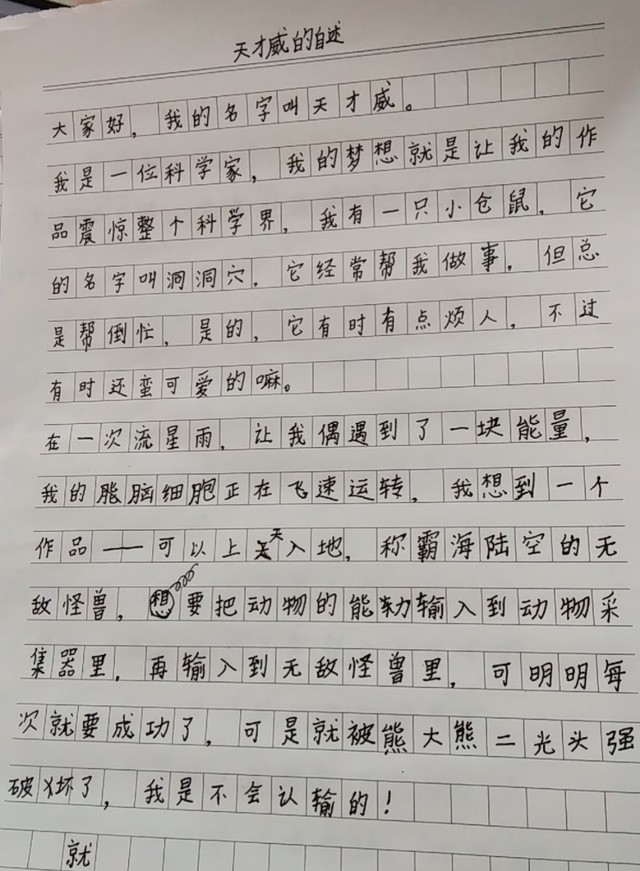 天才威的自述
大家好，我的名字叫天才威。
我是一位科学家，我的梦想就是让我的作
品震惊整个科学界，我有一只小仓鼠，它
的名字叫洞洞穴，它经常帮我做事，但总
是帮倒忙，是的，它有时有点烦人，不过
有时还蛮可爱的嘛。
在一次流星雨，让我偶遇到了一块能量，
我的脑细胞正在飞速运转，我想到一个
作品——可以上天入地，称霸海陆空的无
敌怪兽，要把动物的能力输入到动物采
集器里，再输入到无敌怪兽里，可明明每
次就要成功了，可是就被熊大熊二光头强
破坏了，我是不会认输的！
就